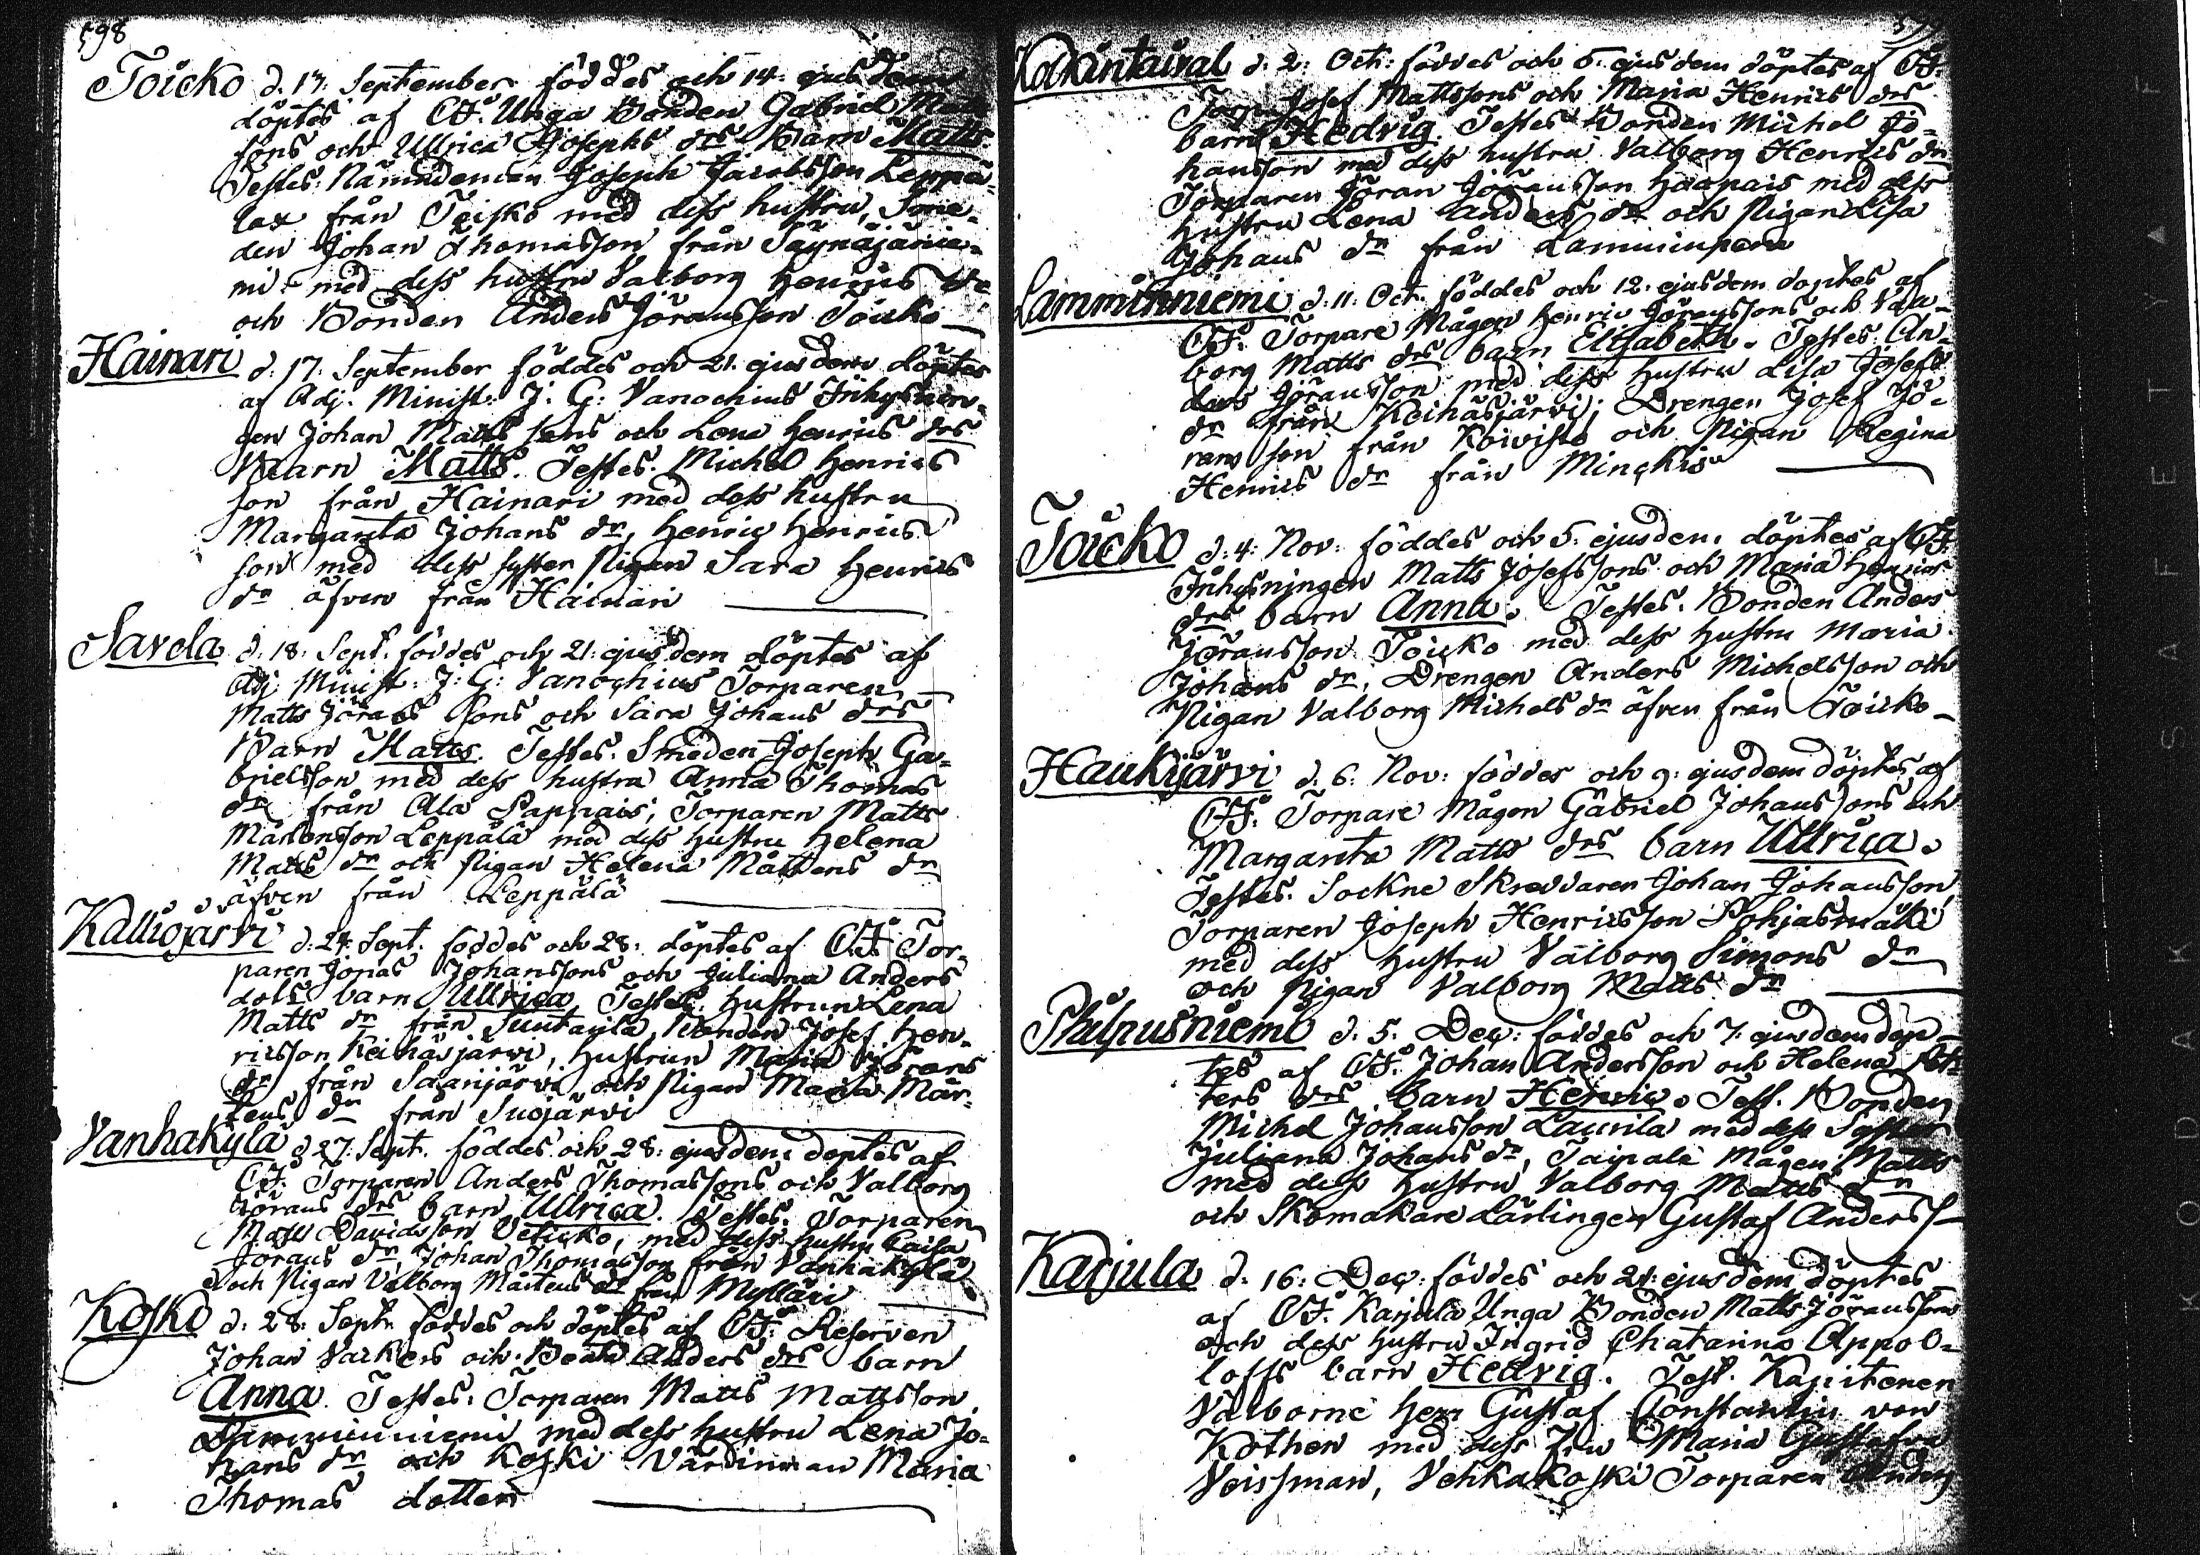 598
Toicko d. 13. September föddes och 14 ejusdem
döptes af Unga Bonden Gabriel
sons och Ullrica Josephs drs Barn Matts
Testes: Nämndeman Joseph Jacobsson Leppä-
lax från Teisko med dess hustru, Sme-
den Johan Thomasson från Säynäjärvi-
mi med dess hustru Valborg Henrics dr
och Bonden Anders Jöransson Toicko
Hainari d. 17. September föddes och 21. ejusdem döptes
af Adj. Minist. J. G. Vanochius Inhysnin-
gen Johan Matts sons och Lena Henrics drs
Baarn Matts. Testes. Michel Henrics
son från Hainari med dess hustru
Margareta Johans dr, Henric Henrics
son med dess syster Pigan Sara Henrics
dr äfven från Hainari
Savela d. 18. Sept. föddes och 21. ejusdem döptes af
Adj Minist. J. G. Vanochius Torparen
Matts Jörans sons och Sara Johans drs
Barn Matts. Testes. Smeden Joseph Ga-
brielsson med dess hustru Anna Thomas
dr från Ala Pappais; Torparen Matts
Mårtensson Leppälä med dess hustru Helena
Matts dr och Pigan Helena Mårtens dr
äfven från Leppälä
Kalliojärvi d. 24. Sept. föddes och 28. döptes af Tor-
paren Jonas Johanssons och Juliana Anders
dots barn Ullrica Testes: hustrun Lena
Matts dr från Suntaula, Bonden Josef Hen-
ricsson Keihäsjärvi, hustrun Maria Jörans
dr från Saarijärvi och Pigan Maria Mår-
tens dr från Suojärvi
Vanhakylä d 27. Sept. föddes och 28. ejusdem döptes af
Torparen Anders Thomassons och Valborg
Jörans drs barn Ullrica. Testes. Torparen
Matts Davidsson Veticko, med dess hustru Caisa
Jörans dr, Johan Thomasson från Vanhakylä
och Pigan Valborg Mårtens dr från Mylläri
Koski d. 28. Septr föddes och döptes af Reserven
Johan Varkers och Beata Anders drs barn
Anna. Testes: Torparen Matts Mattsson
Lamminniemi med dess hustru Lena Jo-
hans dr och Koski Värdinnan Maria
Thomas dotter
d. 2. Oct. föddes och 5. ejusdem döptes af
Josef Mattssons och Maria Henrics drs
barn Hedvig. Testes Bonden Michel Jo-
hansson med dess hustru Valborg Henrics dr
Torparen Jöran Jöransson Haapais med dess
hustru Lena Anders dr och Pigan Lisa
Johans dr från Lamminperä
Lamminniemi d. 11. Oct. föddes och 12. ejusdem döptes af
Torpare Mågen Henric Jöranssons och Val-
borg Matts drs barn Elisabeth. Testes. An-
ders Jöransson med dess hustru Lisa Josefs
dr från Keihäsjärvi; Drengen Josef Jö-
rans son från Koivisto och Pigan Regina
Henrics dr från
Toicko d. 4. Nov. föddes och 5. ejusdem döptes af
Inhysningen Matts Josefssons och Maria Henrics
drs barn Anna. Testes. Bonden Anders
Jöransson Toicko med dess hustru Maria
Johans dr, Drengen Anders Michelsson och
Pigan Valborg Michels dr äfven från Toicko
Haukijärvi d. 6. Nov. föddes och 9. ejusdem döptes af
Torpare Mågen Gabriel Johanssons och
Margareta Matts drs barn Ullrica.
Testes. Sockne Skreddaren Johan Johansson,
Torparen Joseph Henricsson Pohjasmäki
med dess hustru Valborg Simons dr
och Pigan Valborg Matts dr
Philpusniemi d. 5. Dec. föddes och 7. ejusdem döp-
tes af Johan Andersson och Helena Pet-
ters drs barn Henric. Test. Bonden
Michel Johansson Laurila med dess Syster
Juliana Johans dr, Taipale Mågen Matts
med dess hustru Valborg Matts dr
och Skomakare Lärlingen Gustaf Anderss-
Karjula d. 16. Dec. föddes och 21. ejusdem döptes
af Karjula Unga Bonden Matts Jöranssons
och dess hustru Ingrid Chatarina Appo-
loffs barn Hedvig. Test. Kapitenen
Välborne Herr Gustaf Constantin von
Kothen med dess Fru Maria Gustafva
Veissman, Vehkakoski Torparen Anders
KODAK SAFETY F